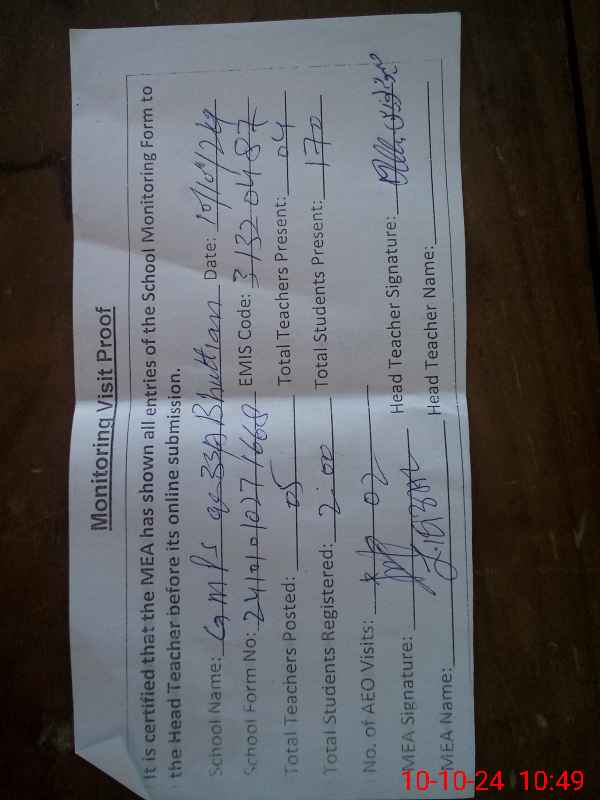 Monitoring Visit Proof
It is certified that the MEA has shown all entries of the School Monitoring Form to
the Head Teacher before its online submission.
School Name: GMPS Bhuttian Date: 10/10/24
School Form No: EMIS Code: 31320487
Total Teachers Posted: 05 Total Teachers Present: 04
Total Students Registered: 200 Total Students Present: 170
No. of AEO Visits: 02
MEA Signature: Head Teacher Signature:
MEA Name: Head Teacher Name:
10-10-24 10:49